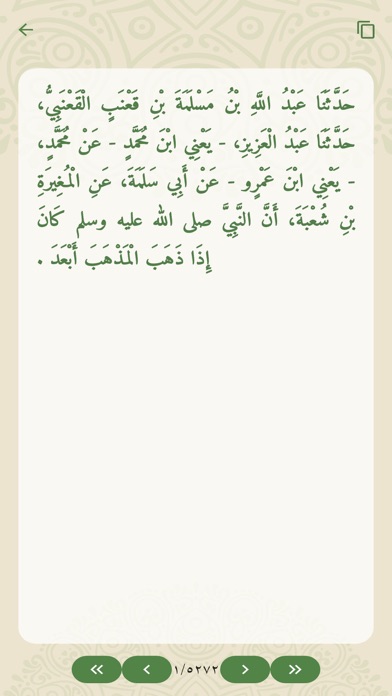 حَدَّثَنَا عَبْدُ اللَّهِ بْنُ مَسْلَمَةَ بْنِ قَعْنَبٍ الْقَعْنَبِيُّ،
حَدَّثَنَا عَبْدُ الْعَزِيزِ، - يَعْنِي ابْنَ مُحَمَّدٍ - عَنْ مُحَمَّدٍ،
- يَعْنِي ابْنَ عَمْرٍو - عَنْ أَبِي سَلَمَةَ، عَنِ الْمُغِيرَةِ
بْنِ شُعْبَةَ، أَنَّ النَّبِيَّ صلى الله عليه وسلم كَانَ
إِذَا ذَهَبَ الْمَذْهَبَ أَبْعَدَ .
١/٥٢٧٢